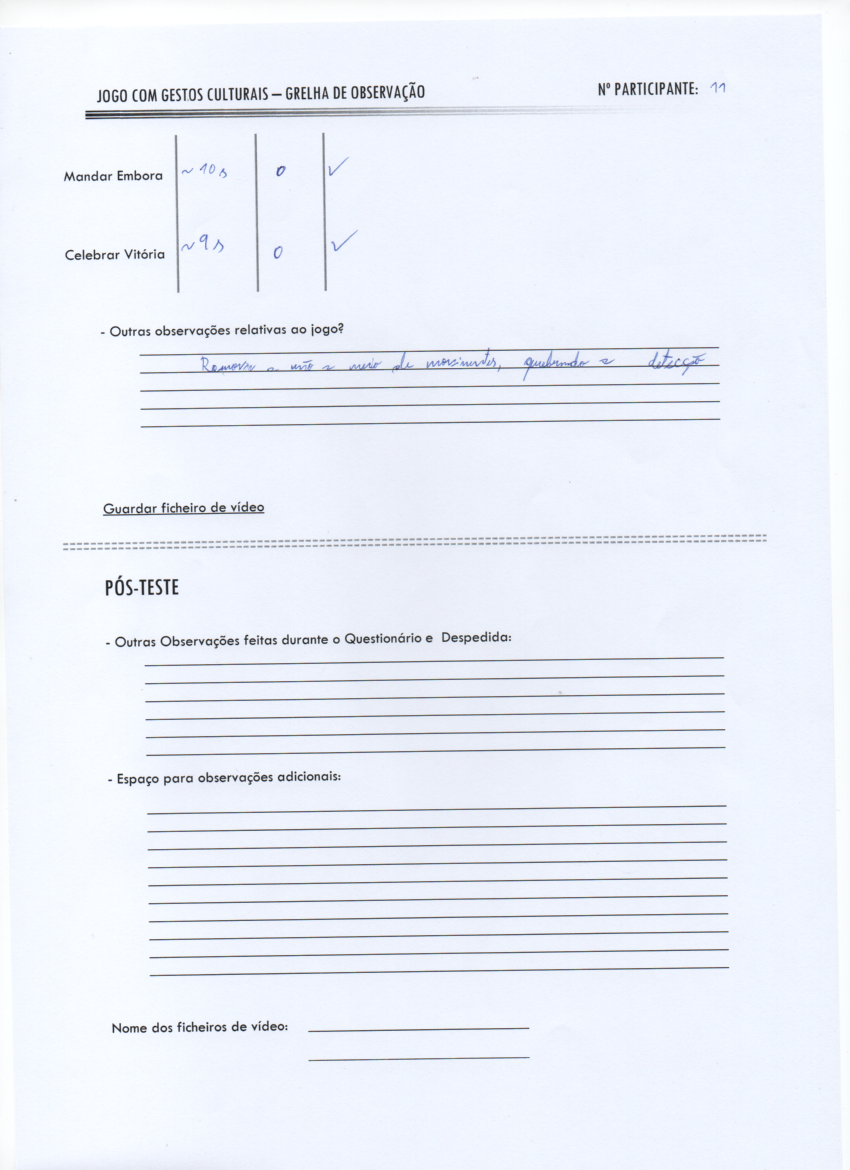 JOGO COM GESTOS CULTURAIS – GRELHA DE OBSERVAÇÃO Nº PARTICIPANTE: 11
Mandar Embora ~10s 0 ✓
Celebrar Vitória ~9s 0 ✓
- Outras observações relativas ao jogo?
a mão a meio de movimentos, quebrando a detecção
Guardar ficheiro de vídeo
PÓS-TESTE
- Outras Observações feitas durante o Questionário e Despedida:
- Espaço para observações adicionais:
Nome dos ficheiros de vídeo: